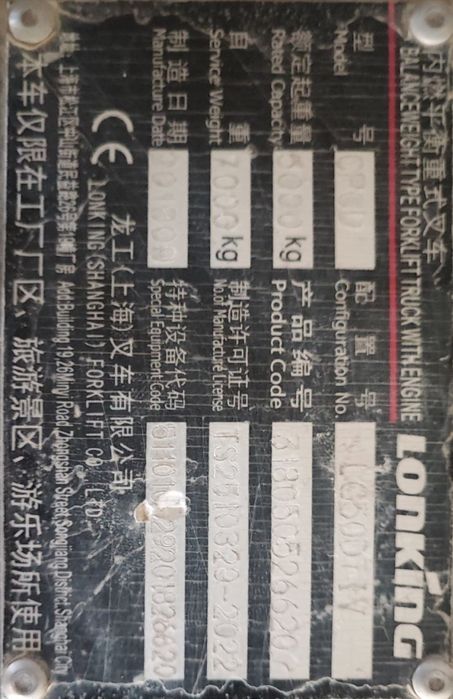 LONKING
内燃平衡重式叉车
BALANCE WEIGHT TYPE FORKLIFT TRUCK WITH ENGINE
型 号 配 置 号
Model Configuration No.
额定起重量 5000 kg 产品编号
Rated Capacity Product Code
自 重 7000 kg 制造许可证号 TS2510329-2022
Service Weight No.of Manufacture License
制造日期 特种设备代码
Manufacture Date Special Equipment Code
CE 龙工(上海)叉车有限公司
LONKING (SHANGHAI) FORKLIFT CO., LTD
Street, Songjiang District, Shanghai City
本车仅限在工厂厂区、旅游景区、游乐场所使用